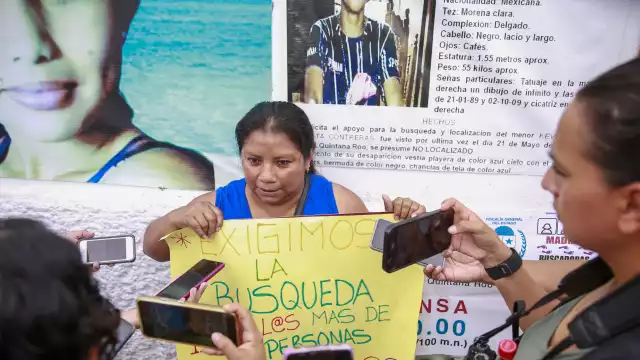 Nacionalidad: Mexicana.
Tez: Morena clara.
Complexion: Delgado.
Cabello: Negro, lacio y largo.
Ojos: Cafés.
Estatura: 1.55 metros aprox.
Peso: 55 kilos aprox.
Señas particulares: Tatuaje en la
derecha un dibujo de infinito y las
de 21-01-89 y 02-10-09 y cicatriz en
derecha
HECHOS
el apoyo para la busqueda y localización del menor
fue visto por ultima vez el dia 21 de Mayo
Quintana Roo, se presume NO LOCALIZADO
de su desaparición vestia playera de color azul cielo con
bermuda de color negro, chanclas de tela de color azul
EXIGIMOS
LA
BUSQUEDA
L@S MAS DE
PERSONAS
FISCALÍA GENERAL
BUSCADORAS
Quintana Roo
NSA
0.00
/100 m.n.)